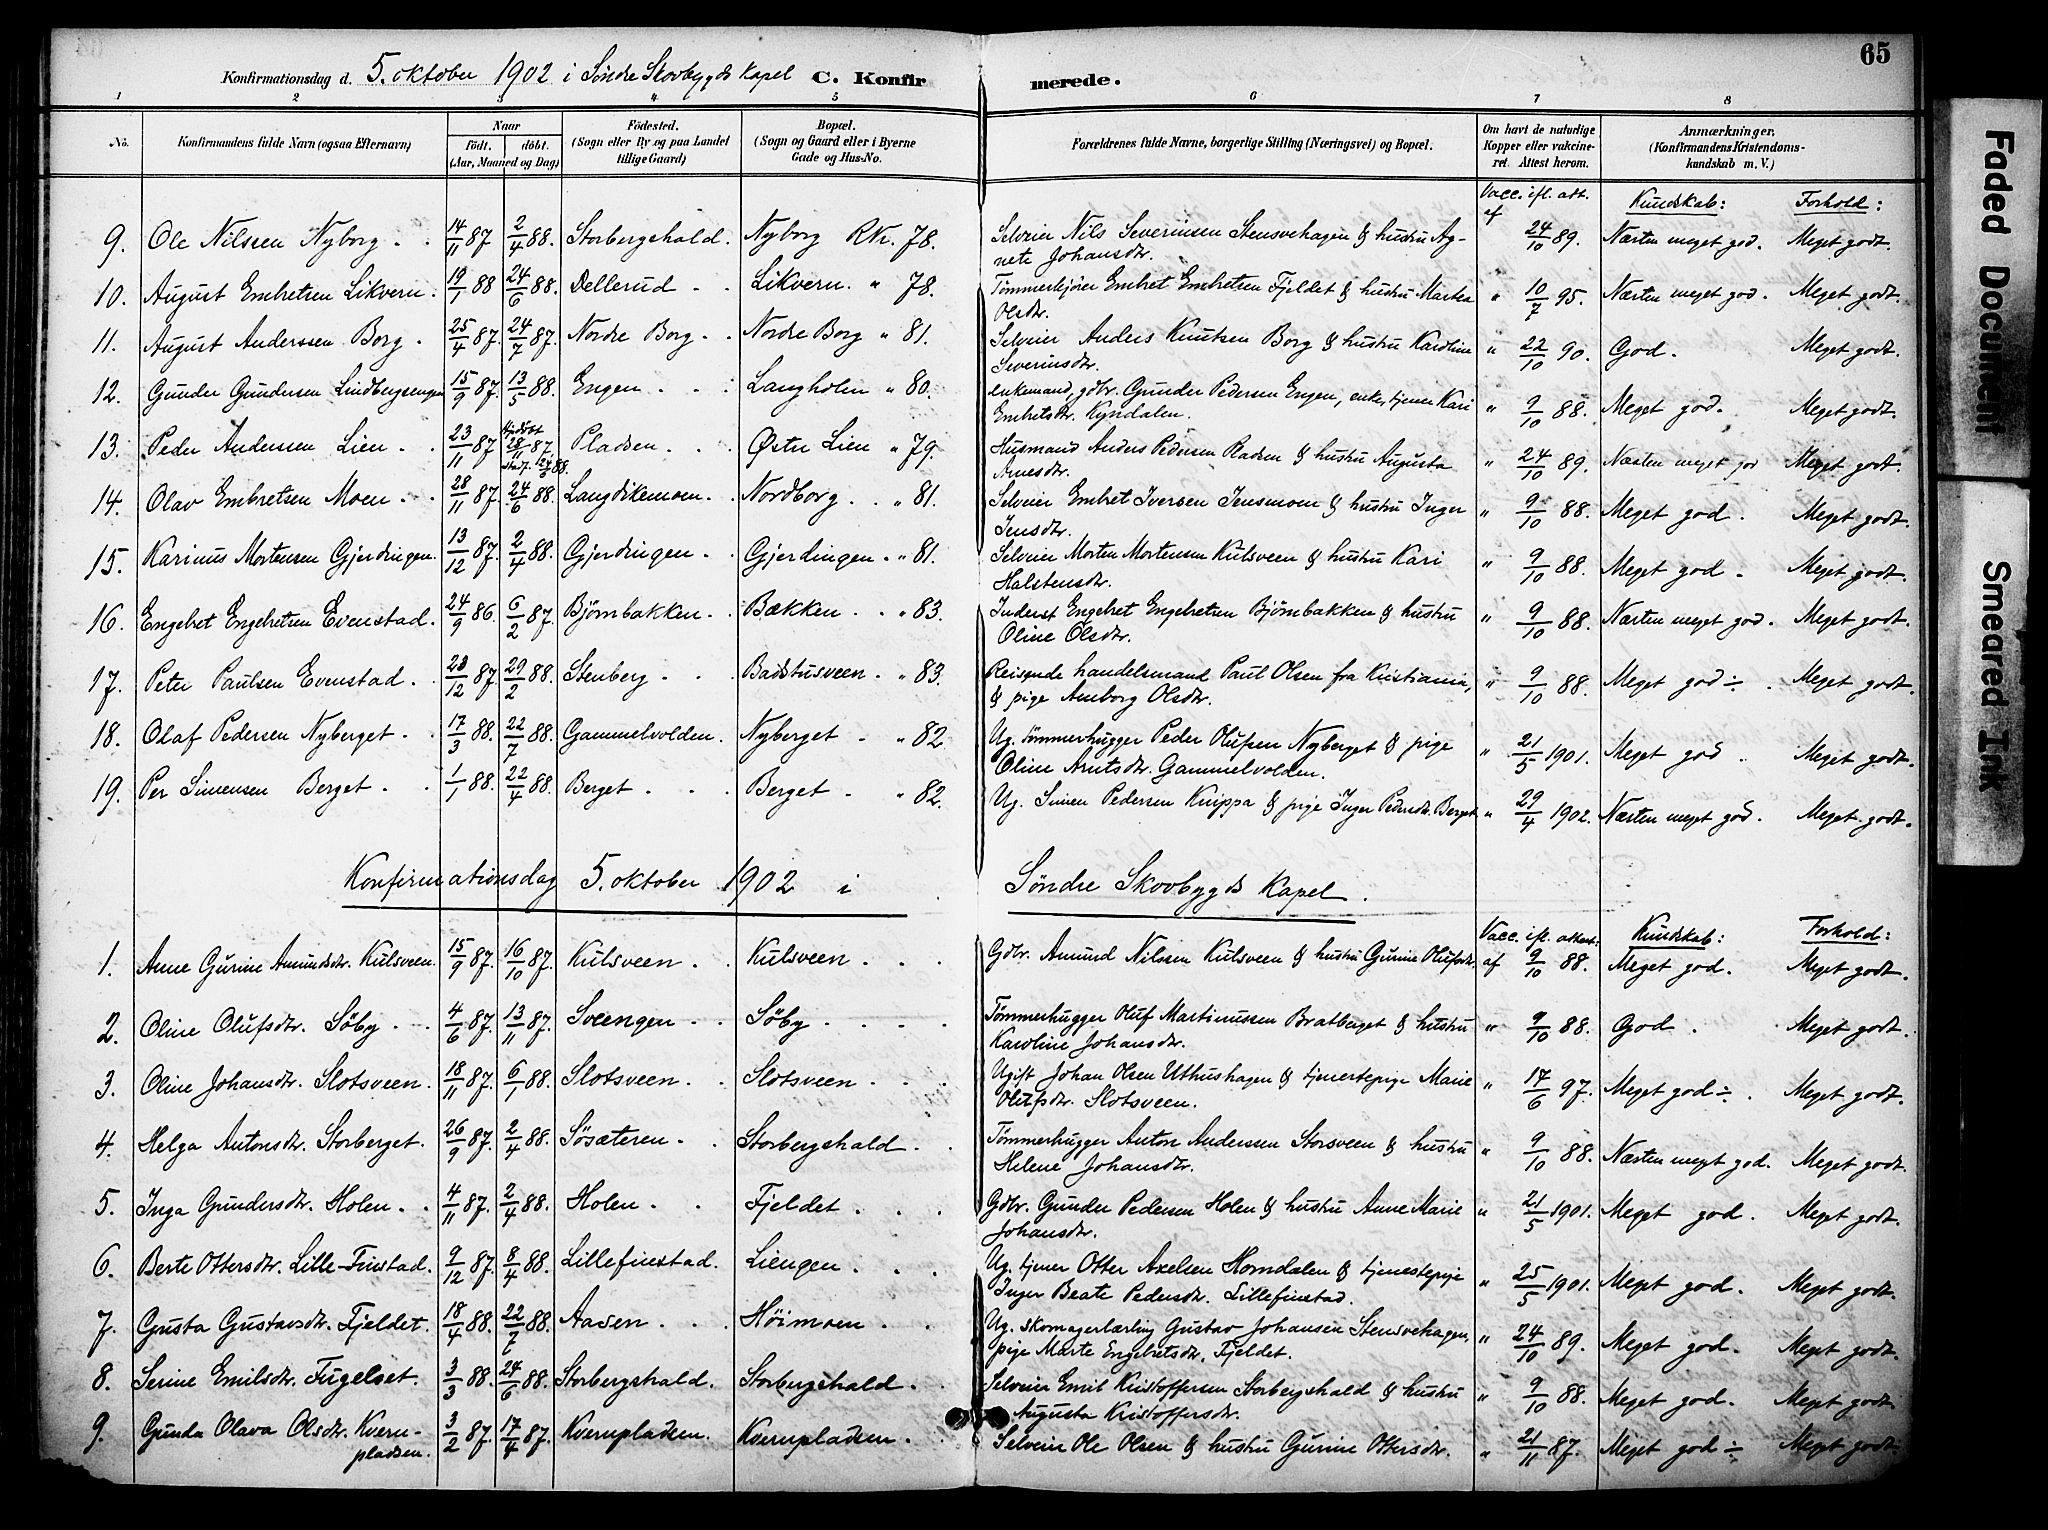 65
Konfirmationsdag d. 5. oktober 1902 i Søndre Skovbygds Kapel C. Konfirmerede.
1 2 3 4 5 6 7 8
No. Konfirmandens fulde Navn (ogsaa Efternavn) Naar født. døbt. (Aar, Maaned og Dag) Fødested. (Sogn eller By og paa Landet tillige Gaard) Bopæl. (Sogn og Gaard eller i Byerne Gade og Hus-No. Forældrenes fulde Navne, borgerlige Stilling (Næringsvei) og Bopæl. Om havt de naturlige Kopper eller vakcineret. Attest herom. Anmærkninger. (Konfirmandens Kristendomskundskab m. V.)
Vacc. ifl. att. af Kundskab: Forhold:
9. Ole Nilssen Nyborg. 14/11 87 2/4 88. Storbergshald. Nyborg RKr. 78. Selveier Nils Severinsen Stensvehagen & hustru Agnete Johansdtr. 24/10 89. Næsten meget god. Meget godt.
10. August Embretsen Likvern. 19/1 88 24/6 88. Dellerud Likvern. " 78. Tømmerkjører Embret Embretsen Fjeldet & hustru Marten Olsdtr. " 10/7 95. Næsten meget god. Meget godt.
11. August Anderssen Borg. 25/4 87. 24/7 87. Nordre Borg Nordre Borg " 81. Selveier Anders Knutsen Borg & hustru Karoline Severinsdtr. " 22/10 90. God. Meget godt.
12. Gunder Gundersen Lindbergsengen 15/9 87. 13/5 88. Engen Langholen " 80. enkemand, gdbr. Gunder Pedersen Engen, enke, tjener Kari Embretsdtr. Kyndalen. " 9/10 88. Meget god. Meget godt.
13. Peder Anderssen Lien. 23/11 87 hjdøbt 28/11 87. stadf. 12/4 88. Pladsen Østre Lien " 79. Husmand Anders Pedersen Pladsen & hustru Augusta Arnesdtr. " 24/10 89. Næsten meget god Meget godt.
14. Olav Embretsen Moen 28/11 87. 24/6 88. Langdikemoen. Nordborg. " 81. Selveier Embret Iversen Jensmoen & hustru Inger Jensdtr. " 9/10 88. Meget god. Meget godt.
15. Karinus Mortensen Gjerdingen. 13/12 87. 2/4 88. Gjerdingen. Gjerdingen. " 81. Selveier Morten Mortensen Kulsveen & hustru Kari Halstensdtr. " 9/10 88. Meget god. Meget godt.
16. Engebret Engebretsen Evenstad. 24/9 86. 6/2 87. Bjørnbakken. Bækken. " 83. Inderst Engebret Engebretsen Bjørnbakken & hustru Oline Olsdtr. " 9/10 88. Næsten meget god. Meget godt.
17. Peter Paulsen Evenstad. 23/12 87. 29/2 88. Stenberg Badstusveen. " 83. Reisende handelsmand Paul Olsen fra Kristiania, & pige Amborg Olsdtr. " 9/10 88. Meget god ÷. Meget godt.
18. Olaf Pedersen Nyberget. 17/3 88. 22/7 88. Gammelvolden. Nyberget " 82. Ug. tømmerhugger Peder Olufsen Nyberget & pige Oline Arntsdtr. Gammelvolden. " 21/5 1901. Meget god. Meget godt.
19. Per Simensen Berget. 1/1 88. 22/4 88. Berget Berget " 82. Ug. Simen Pedersen Knippa & pige Inger Pedersdtr. Berget " 29/4 1902. Næsten meget god. Meget godt.
Konfirmationsdag 5. oktober 1902 i Søndre Skovbygds Kapel.
Vacc. ifl. attest: Kundskab: Forhold:
1. Anne Gurine Amundsdtr. Kulsveen. 15/9 87. 16/10 87. Kulsveen Kulsveen Gdbr. Amund Nilssen Kulsveen & hustru Gurine Olufsdtr. af 9/10 88. Meget god. Meget godt.
2. Oline Olufsdtr. Søby. 4/6 87. 13/11 87. Sveengen Søby. Tømmerhugger Oluf Martinussen Bratberget & hustru Karoline Johansdtr. " 9/10 88. God. Meget godt.
3. Oline Johansdtr. Slotsveen. 18/11 87. 6/1 88. Slotsveen. Slotsveen. Ugift Johan Olsen Uthushagen & tjenestepige Marie Olufsdtr. Slotsveen. " 17/6 97. Meget god ÷. Meget godt.
4. Helga Antonsdtr. Storberget. 26/9 87. 2/4 88. Søsæteren. Storbergshald. Tømmerhugger Anton Anderssen Storsveen & hustru Helene Johansdtr. " 9/10 88. Næsten meget god. Meget godt.
5. Inga Gundersdtr. Holen. 4/11 87. 2/4 88. Holen. Fjeldet. Gdbr. Gunder Pedersen Holen & hustru Anne Marie Johansdtr. " 21/5 1901. Meget god. Meget godt.
6. Berte Ottersdtr. Lille-Finstad. 9/12 87. 8/4 88. Lillefinstad. Liengen. Ug. tjener Otter Axelsen Horndalen & tjenestepige Inger Beate Pedersdtr. Lillefinstad. " 25/5 1901. Meget god. Meget godt.
7. Gusta Gustavsdtr. Fjeldet. 18/4 88. 22/7 88. Aasen Høimoen Ug. skomagerlærling Gustav Johansen Stensvehagen, pige Marte Engebretsdtr. Fjeldet. " 24/10 89. Meget god. Meget godt.
8. Serine Emilsdtr. Fugelset. 3/3 88. 24/6 88. Storbergshald. Storbergshald. Selveier Emil Kristoffersen Storbergshald & hustru Augusta Kristoffersdtr. " 9/10 88. Meget god. Meget godt.
9. Gunda Olava Olsdtr. Kvernpladsen. 3/2 87. 17/4 87. Kvernpladsen. Kvernpladsen. Selveier Ole Olsen & hustru Gurine Ottersdtr. " 21/11 87. Meget god ÷ Meget godt.
Faded Document
Smeared Ink